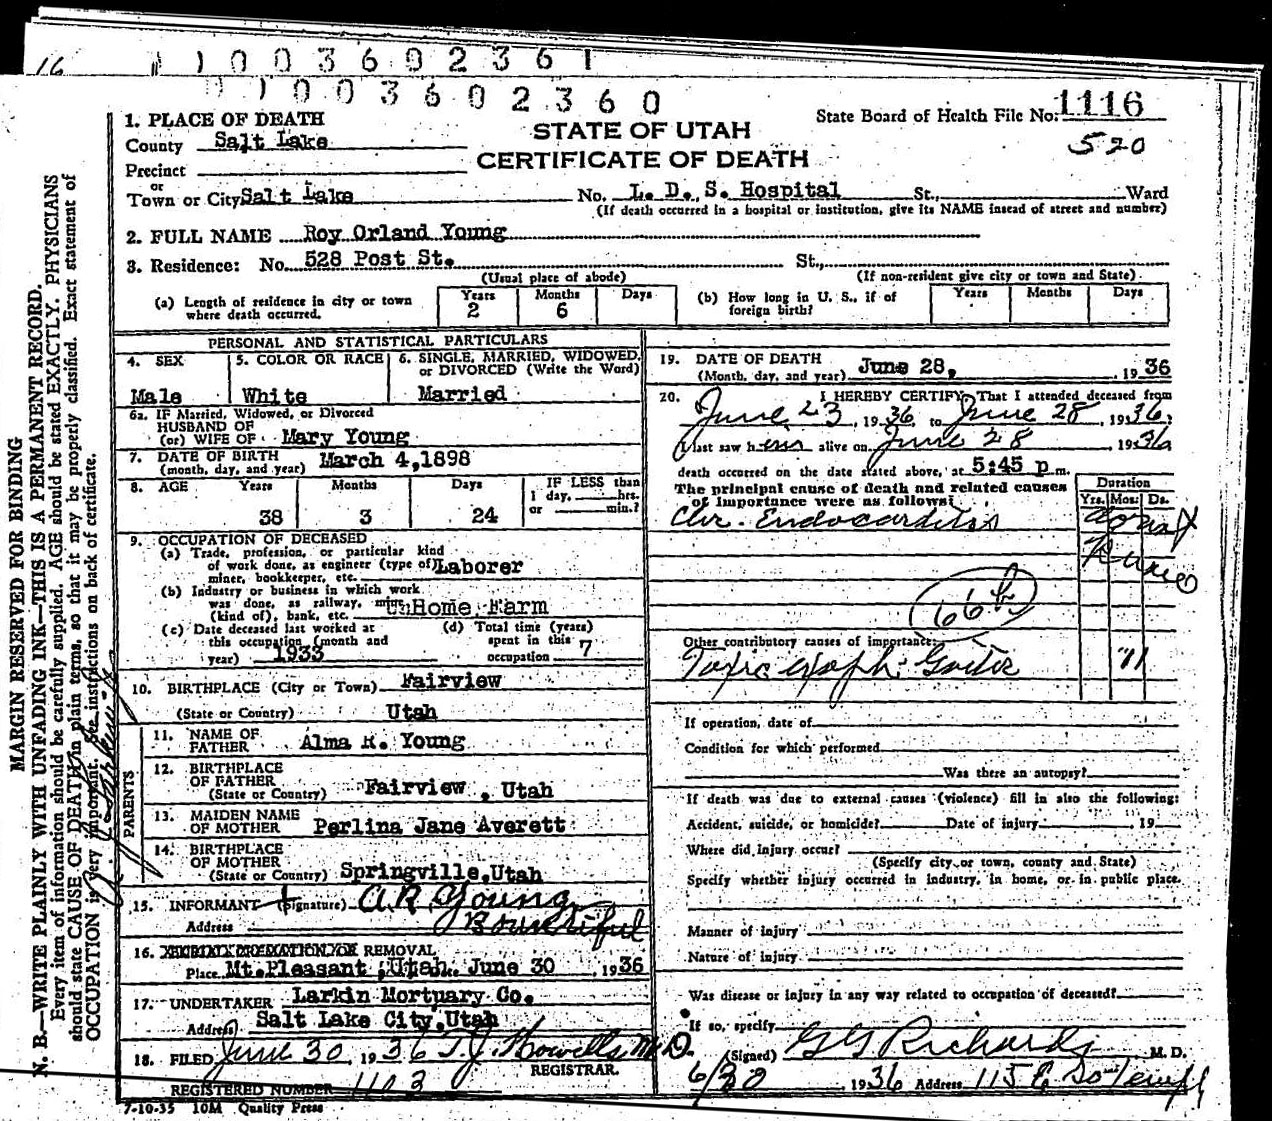 16
1 1 0 0 3 6 0 2 3 6 1
0 1 0 0 3 6 0 2 3 6 0
1. PLACE OF DEATH
County Salt Lake
Precinct
or
Town or City Salt Lake
STATE OF UTAH
CERTIFICATE OF DEATH
State Board of Health File No: 1116
520
No. L. D. S. Hospital St., Ward
(If death occurred in a hospital or institution, give its NAME instead of street and number)
2. FULL NAME Roy Orland Young
3. Residence: No. 528 Post St. St.,
(Usual place of abode) (If non-resident give city or town and State)
(a) Length of residence in city or town where death occurred. Years 2 Months 6 Days
(b) How long in U. S., if of foreign birth? Years Months Days
PERSONAL AND STATISTICAL PARTICULARS
4. SEX
Male
5. COLOR OR RACE
White
6. SINGLE, MARRIED, WIDOWED, or DIVORCED (Write the Word)
Married
6a. IF Married, Widowed, or Divorced
HUSBAND OF
(or) WIFE OF Mary Young
7. DATE OF BIRTH
(month, day, and year) March 4,1898
8. AGE Years 38 Months 3 Days 24
IF LESS than
1 day, hrs.
or min.?
9. OCCUPATION OF DECEASED
(a) Trade, profession, or particular kind
of work done, as engineer (type of) Laborer
miner, bookkeeper, etc.
(b) Industry or business in which work
was done, as railway, Home Farm
(kind of), bank, etc.
(c) Date deceased last worked at
this occupation (month and
year) 1933
(d) Total time (years)
spent in this
occupation 7
10. BIRTHPLACE (City or Town) Fairview
(State or Country) Utah
PARENTS
11. NAME OF
FATHER Alma R. Young
12. BIRTHPLACE
OF FATHER
(State or Country) Fairview , Utah
13. MAIDEN NAME
OF MOTHER Perlina Jane Averett
14. BIRTHPLACE
OF MOTHER
(State or Country) Springville,Utah
15. INFORMANT (Signature) A.R. Young
Address Bountiful
16. REMOVAL
Place Mt.Pleasant ,Utah. June 30 , 1936
17. UNDERTAKER Larkin Mortuary Co.
Address Salt Lake City,Utah
18. FILED June 30 1936 T.J. Howells M.D.
REGISTRAR.
REGISTERED NUMBER 1103
7-10-35 10M Quality Press
19. DATE OF DEATH
(Month, day, and year) June 28, , 1936
20. I HEREBY CERTIFY, That I attended deceased from
June 23, 1936, to June 28, 1936;
I last saw him alive on June 28 1936
death occurred on the date stated above, at 5:45 p m.
The principal cause of death and related causes
of importance were as follows:
Duration
Yrs. Mos. Ds.
Chr. Endocarditis
66b
Other contributory causes of importance:
Goiter "
If operation, date of
Condition for which performed
Was there an autopsy?
If death was due to external causes (violence) fill in also the following:
Accident, suicide, or homicide? Date of injury , 19
Where did injury occur?
(Specify city or town, county and State)
Specify whether injury occurred in industry, in home, or in public place.
Manner of injury
Nature of injury
Was disease or injury in any way related to occupation of deceased?
If so, specify
(Signed) G G Richards M. D.
6/30 1936 Address 115 E So Temple
MARGIN RESERVED FOR BINDING
N. B.—WRITE PLAINLY WITH UNFADING INK—THIS IS A PERMANENT RECORD.
Every item of information should be carefully supplied. AGE should be stated EXACTLY. PHYSICIANS
should state CAUSE OF DEATH in plain terms, so that it may be properly classified. Exact statement of
OCCUPATION is very important. See instructions on back of certificate.